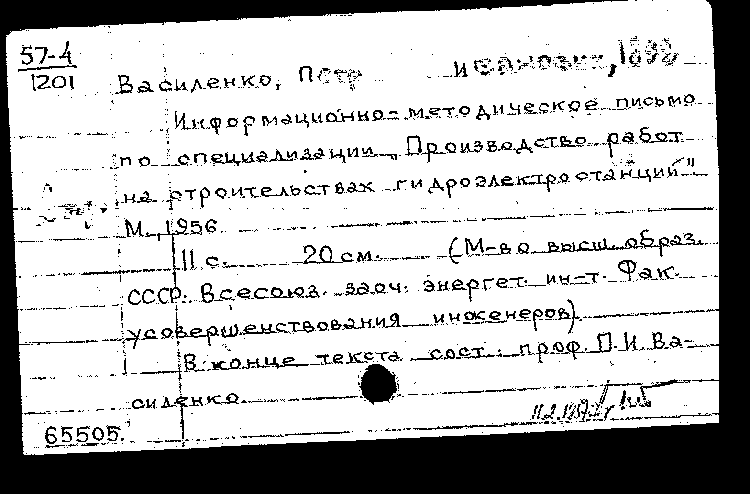 57-4
1201
Василенко, Петр Иванович, 1898
Информационно-методическое письмо
по специализации „Производство работ
на строительствах гидроэлектростанций"
М., 1956
11 с. 20 см. (М-во высш. образ.
СССР. Всесоюз. заоч. энергет. ин-т. Фак.
усовершенствования инженеров).
В конце текста сост.: проф. П.И. Ва-
силенко.
65505.